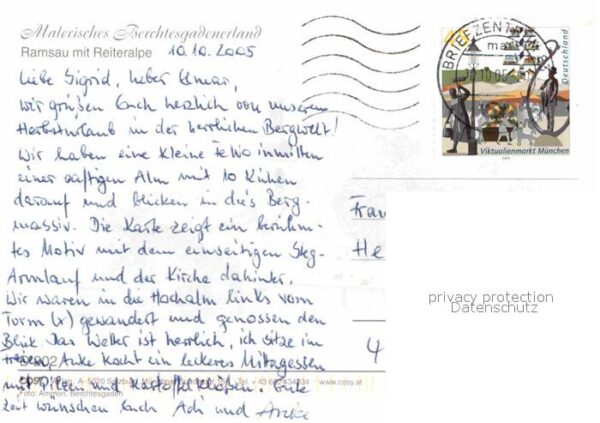 Malerisches Berchtesgadenerland
Ramsau mit Reiteralpe 10.10.2005
Liebe Sigrid, lieber Elmar,
wir grüßen Euch herzlich von unserem
Herbsturlaub in der herrlichen Bergwelt!
Wir haben eine kleine FeWo inmitten
einer saftigen Alm mit 10 Kühen
darauf und blicken in dies Berg-
massiv. Die Karte zeigt ein berühm-
tes Motiv mit dem einseitigen Steg-
Armlauf und der Kirche dahinter.
Wir waren in die Hochalm links vom
Turm (x) gewandert und genossen den
Blick. Das Wetter ist herrlich, ich sitze im
Freien, Anke kocht ein leckeres Mittagessen
mit Pilzen und Kartoffelklößen. Gute
Zeit wünschen Euch Adi und Anke
A-5020 Salzburg
www.cosy.at
Foto: Ammon, Berchtesgaden
BRIEFZENTRUM
Deutschland
Viktualienmarkt München
Frau
He
4
privacy protection
Datenschutz